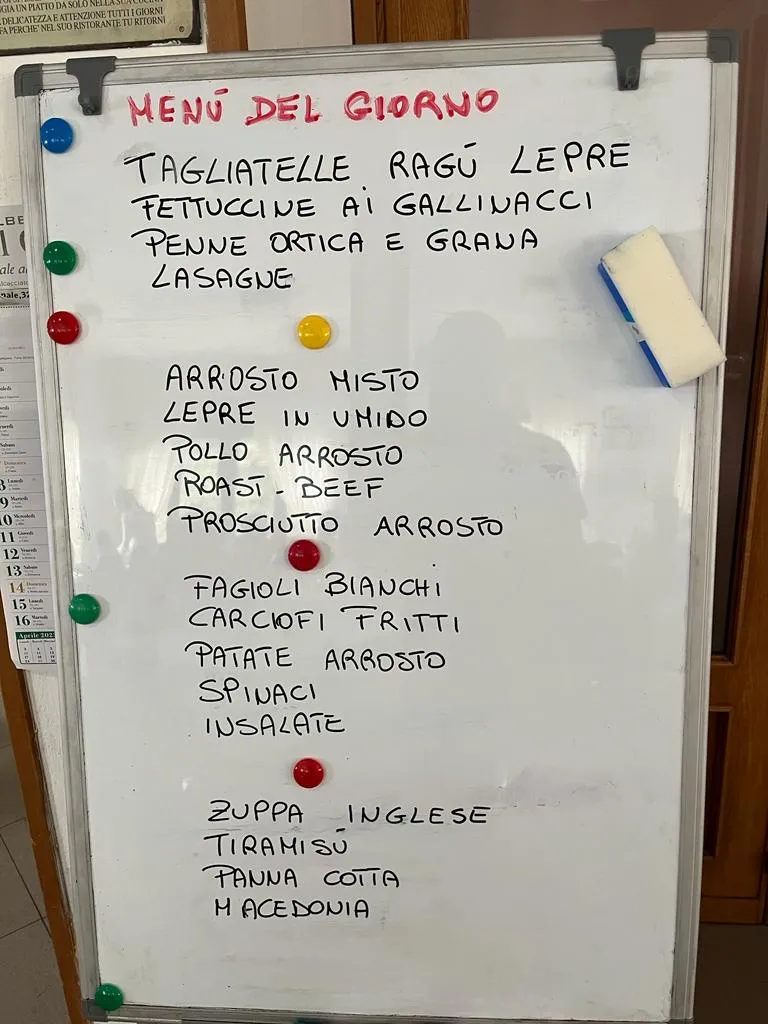 GIA UN PIATTO DA SOLO NELLA SUA CUCINA
DELICATEZZA E ATTENZIONE TUTTI I GIORNI
FA PERCHE' NEL SUO RISTORANTE TU RITORNI
MENÚ DEL GIORNO
TAGLIATELLE RAGÚ LEPRE
FETTUCCINE AI GALLINACCI
PENNE ORTICA E GRANA
LASAGNE
ARROSTO MISTO
LEPRE IN UMIDO
POLLO ARROSTO
ROAST-BEEF
PROSCIUTTO ARROSTO
FAGIOLI BIANCHI
CARCIOFI FRITTI
PATATE ARROSTO
SPINACI
INSALATE
ZUPPA INGLESE
TIRAMISÚ
PANNA COTTA
MACEDONIA
9 Martedì
10 Mercoledì
11 Giovedì
12 Venerdì
13 Sabato
14 Domenica
15 Lunedì
16 Martedì
Aprile